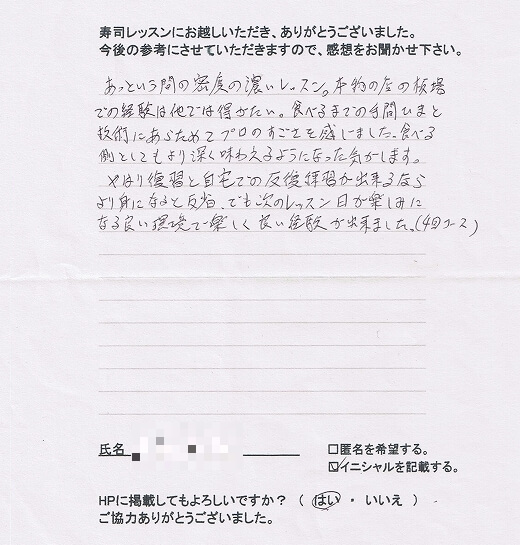 寿司レッスンにお越しいただき、ありがとうございました。
今後の参考にさせていただきますので、感想をお聞かせ下さい。
あっという間の密度の濃いレッスン。本物の店の板場
での経験は他では得がたい。食べるまでの手間ひまと
技術にあらためてプロのすごさを感じました。食べる
側としてもより深く味わえるようになった気がします。
やはり復習と自宅での反復練習が出来るなら
より身になると反省。でも次のレッスン日が楽しみに
なる良い環境で楽しく良い経験が出来ました。(4回コース)
氏名
□匿名を希望する。
☑イニシャルを記載する。
HPに掲載してもよろしいですか？（ はい ・ いいえ ）
ご協力ありがとうございました。